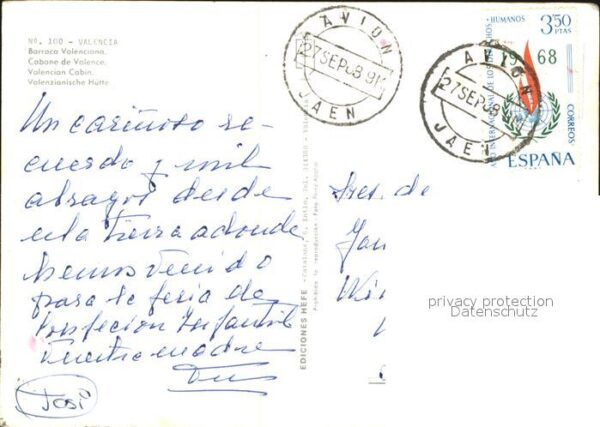 Nº. 100 - VALENCIA
Barraca Valenciana.
Cabane de Valence.
Valencian Cabin.
Valenzianische Hütte.
Un cariñoso re-
cuerdo y mil
abrazos desde
esta tierra adonde
hemos venido
para la feria de
Confección Infantil
Vuestra madre
José
AVION
27 SEP 68
JAEN
AVION
27 SEP 68
JAEN
HUMANOS
3,50
PTAS
1968
AÑO INTERNACIONAL DE LOS DERECHOS
CORREOS
ESPAÑA
EDICIONES HEFE
Prohibida la reproducción
Sres. de
privacy protection
Datenschutz